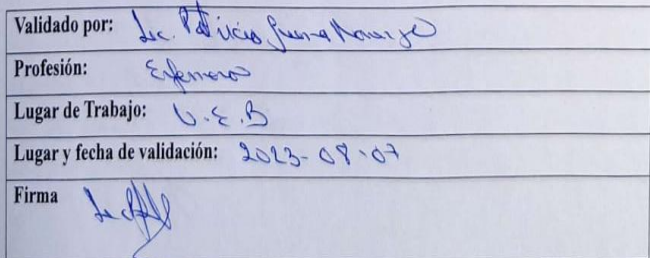 Validado por: Lic. Patricio Guerra Naranjo
Profesión: Enfermero
Lugar de Trabajo: U.E.B
Lugar y fecha de validación: 2023-08-07
Firma